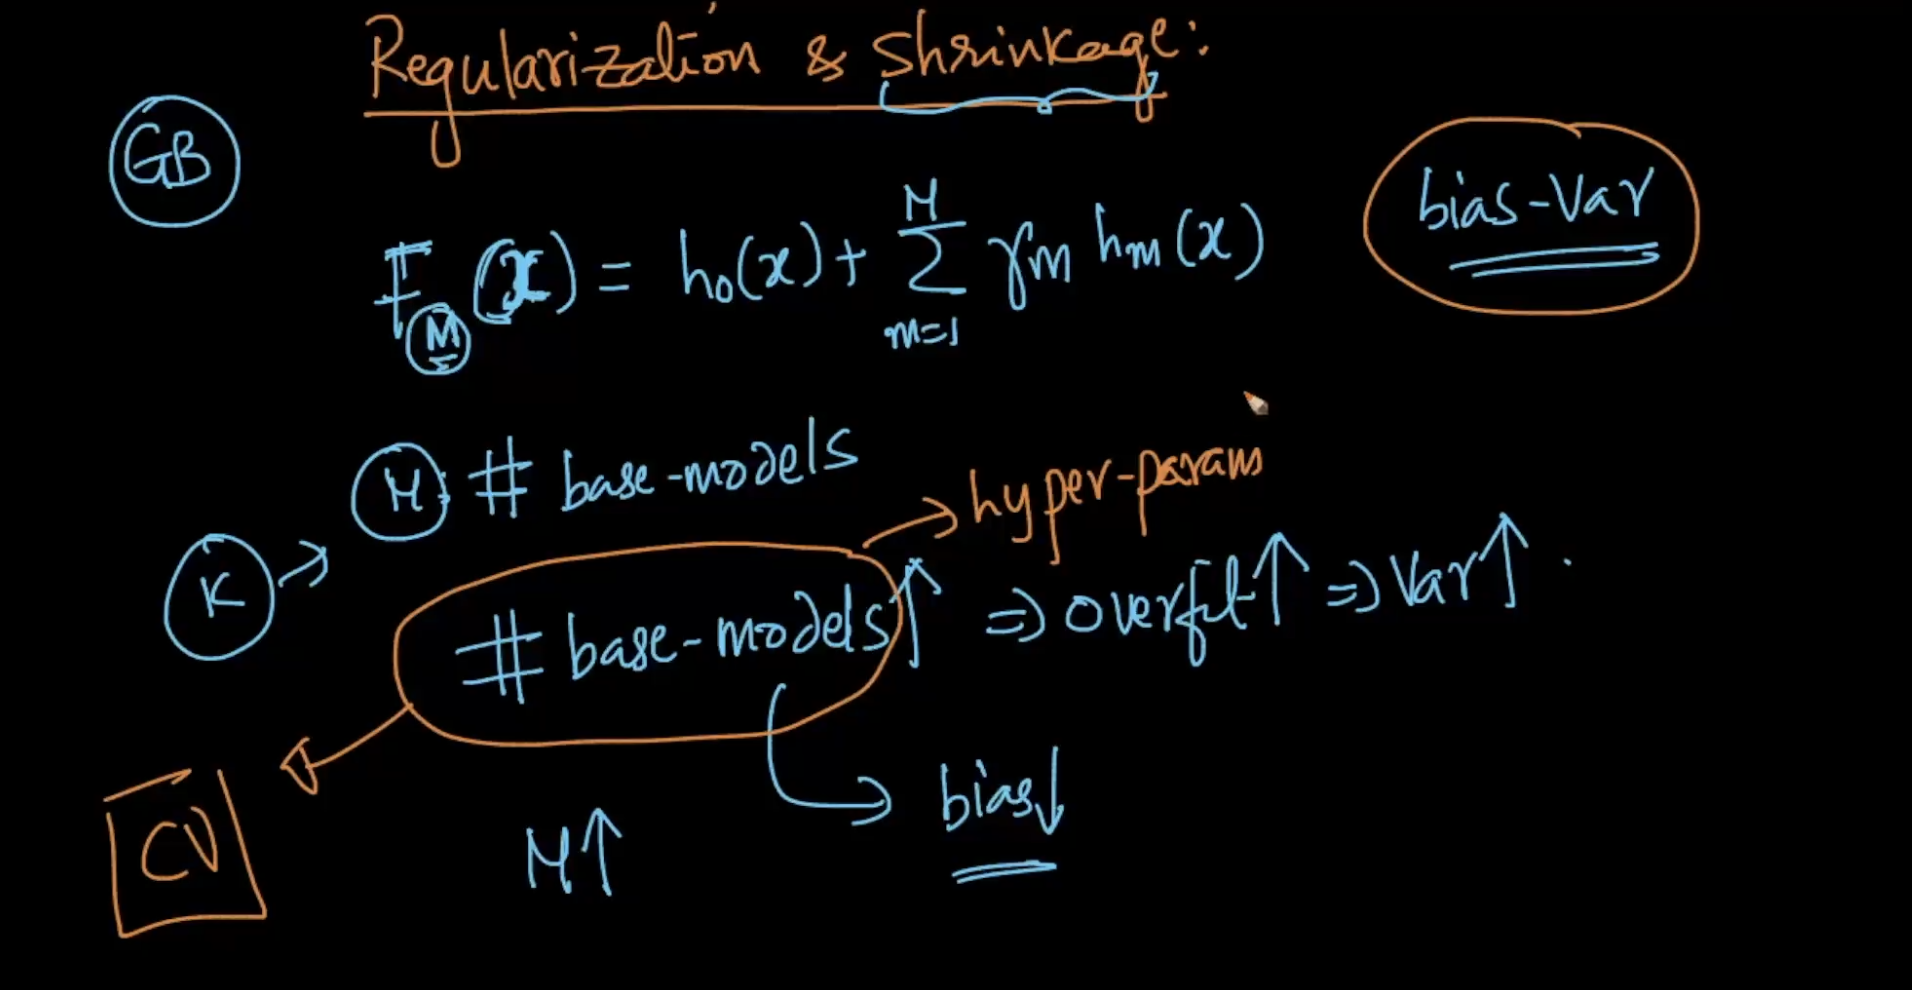 Regularization & Shrinkage:
GB
F_M(x) = h₀(x) + ∑_{m=1}^{M} γₘ hₘ(x)
bias-Var
M # base-models
→ hyper-param
K →
# base-models↑ ⇒ overfit↑ ⇒ Var↑.
CV
M↑
bias↓